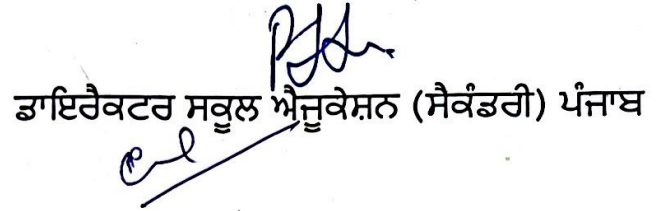 ਡਾਇਰੈਕਟਰ ਸਕੂਲ ਐਜੂਕੇਸ਼ਨ (ਸੈਕੰਡਰੀ) ਪੰਜਾਬ